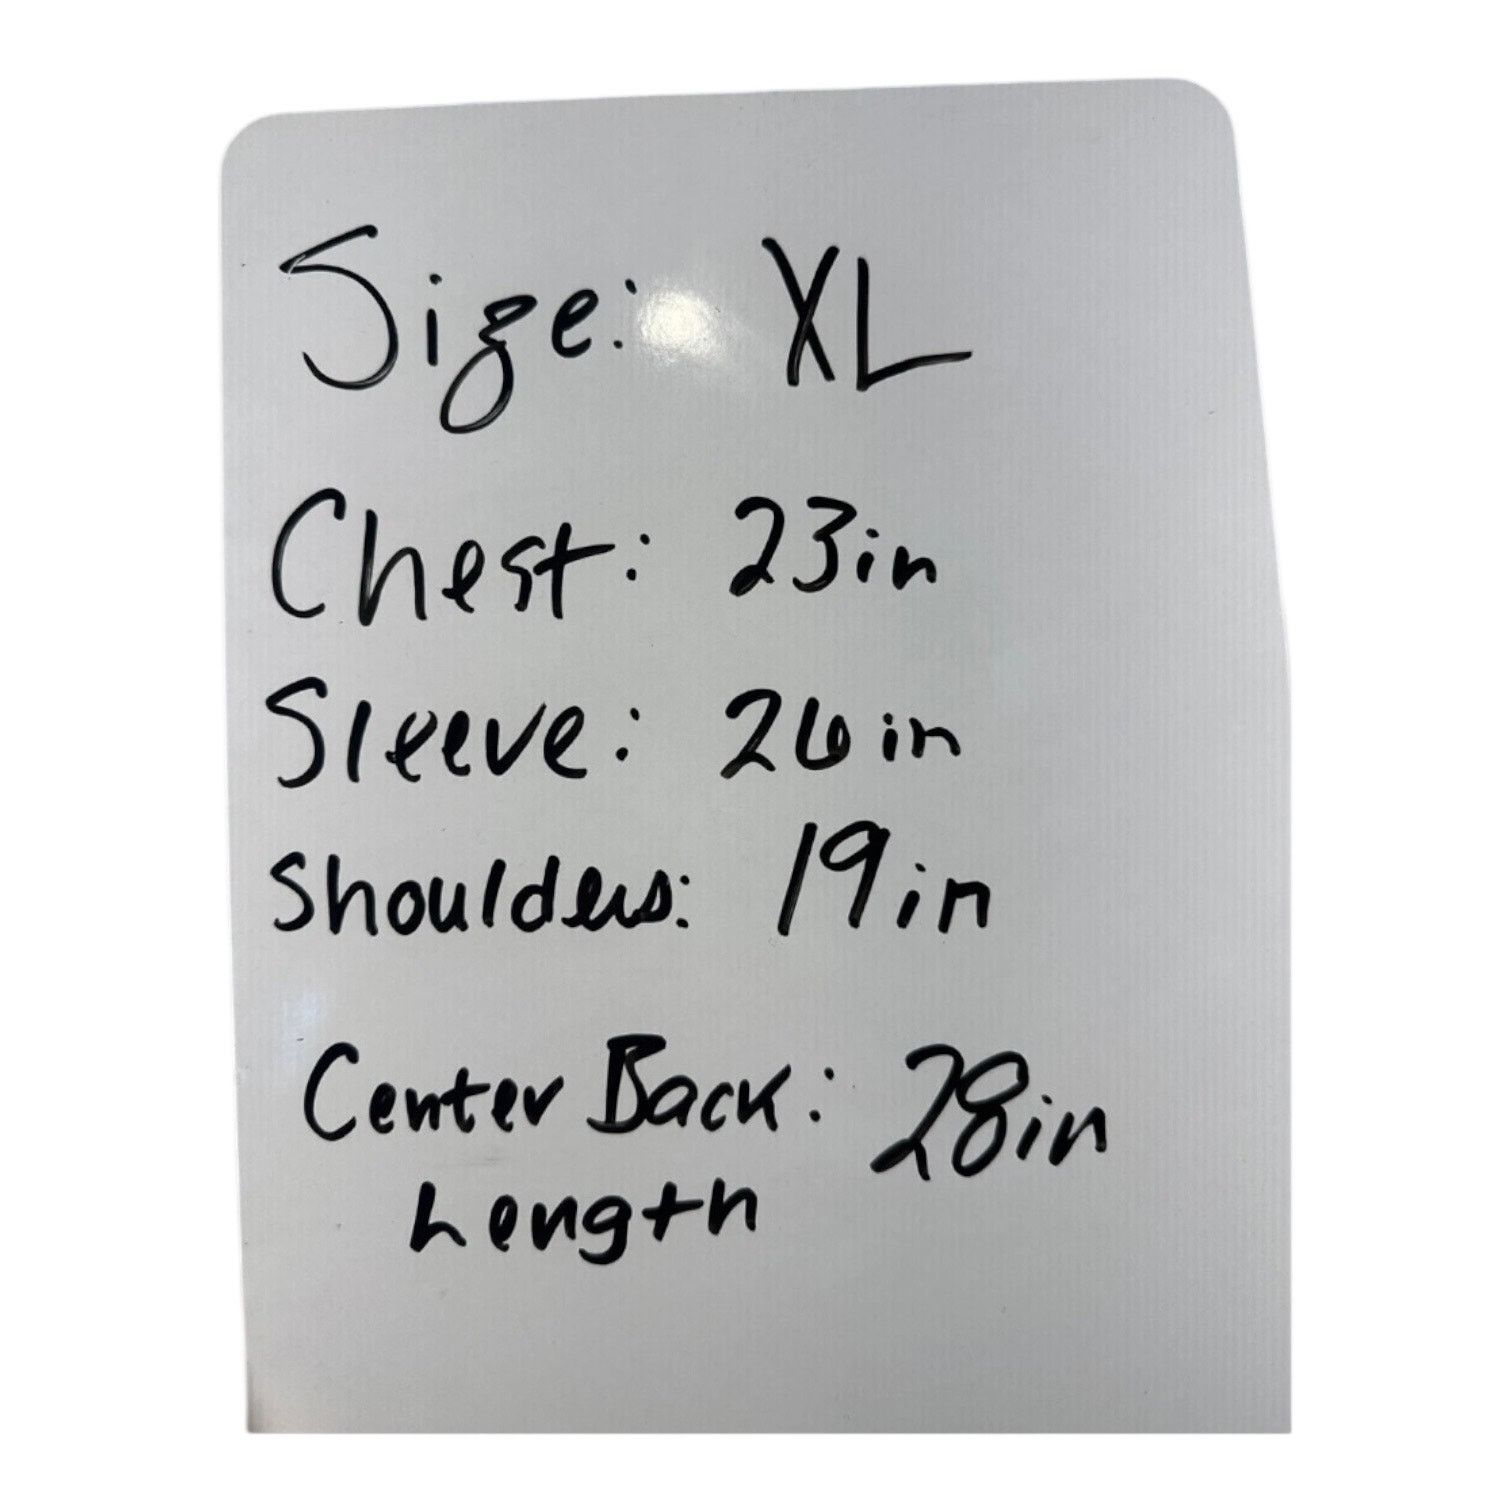 Size: XL
Chest: 23in
Sleeve: 26in
Shoulders: 19in
Center Back: 28in
Length